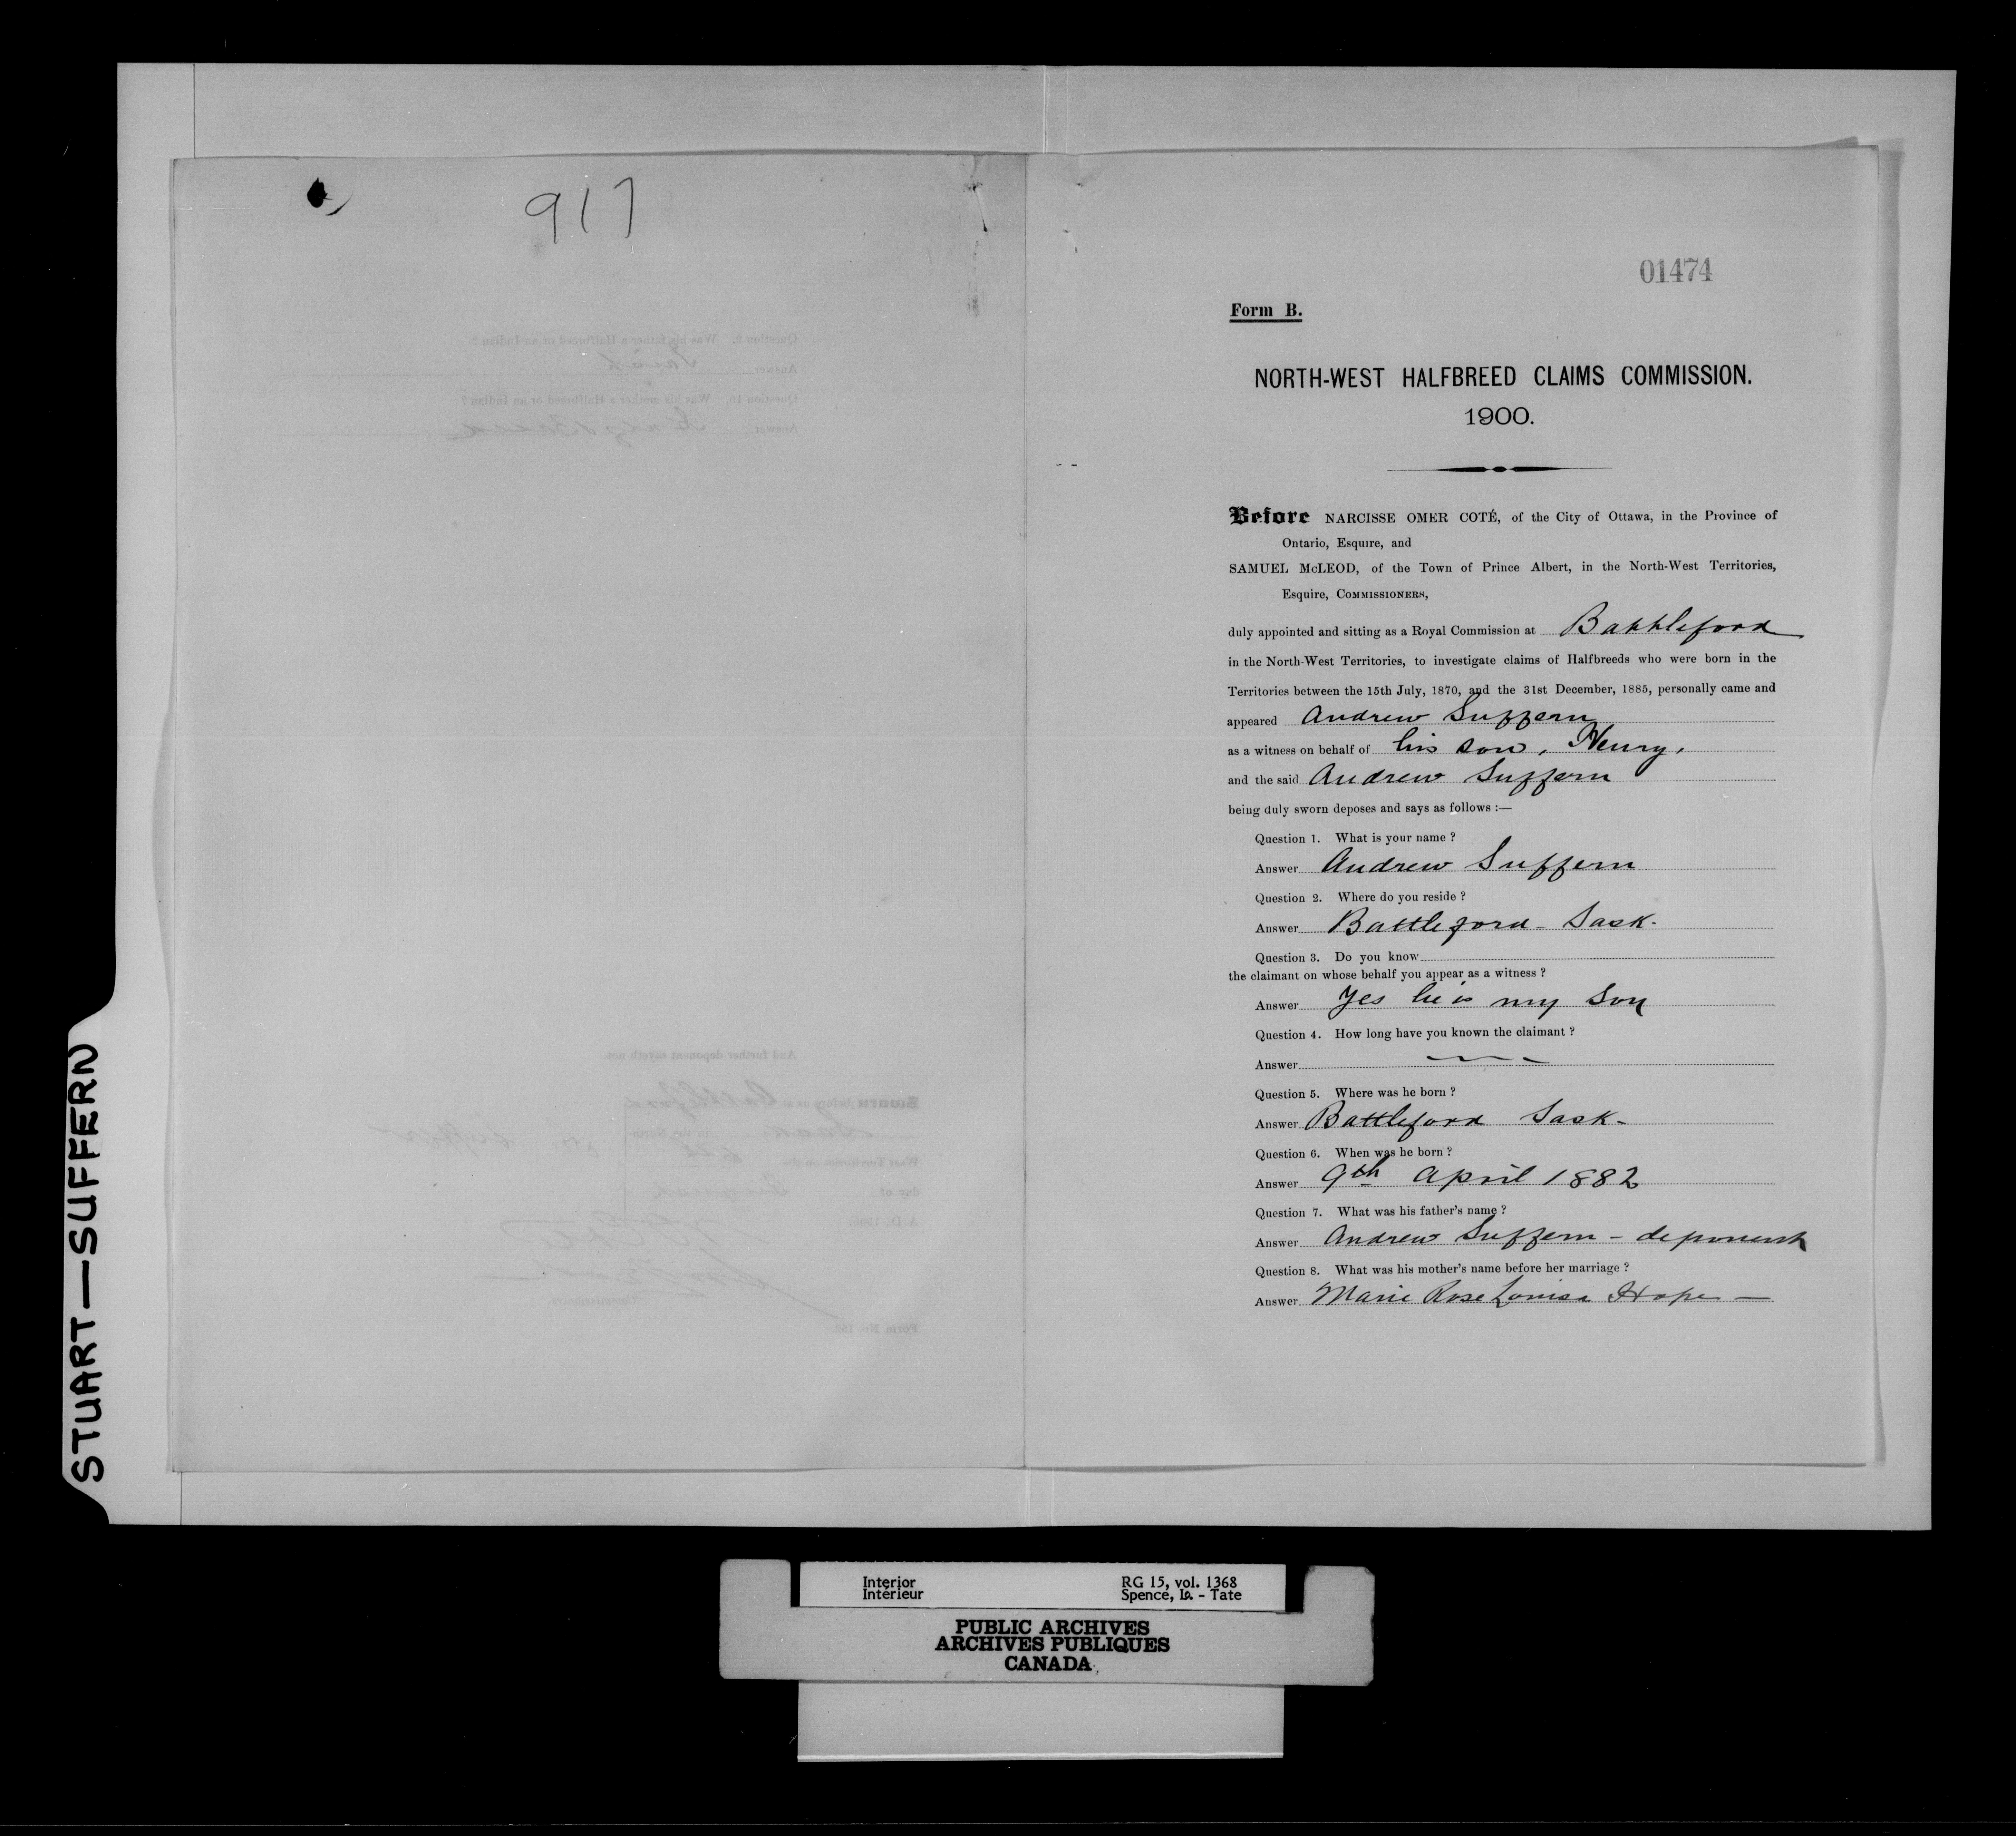 917
01474
Form B.
NORTH-WEST HALFBREED CLAIMS COMMISSION.
1900.
Before NARCISSE OMER COTÉ, of the City of Ottawa, in the Province of
Ontario, Esquire, and
SAMUEL McLEOD, of the Town of Prince Albert, in the North-West Territories,
Esquire, COMMISSIONERS,
duly appointed and sitting as a Royal Commission at Battleford
in the North-West Territories, to investigate claims of Halfbreeds who were born in the
Territories between the 15th July, 1870, and the 31st December, 1885, personally came and
appeared Andrew Suffern
as a witness on behalf of his son, Henry,
and the said Andrew Suffern
being duly sworn deposes and says as follows :—
Question 1. What is your name ?
Answer Andrew Suffern
Question 2. Where do you reside ?
Answer Battleford - Sask.
Question 3. Do you know
the claimant on whose behalf you appear as a witness ?
Answer Yes he is my son
Question 4. How long have you known the claimant ?
Answer
Question 5. Where was he born ?
Answer Battleford Sask-
Question 6. When was he born ?
Answer 9th April 1882
Question 7. What was his father's name ?
Answer Andrew Suffern - deponent
Question 8. What was his mother's name before her marriage ?
Answer Marie Rose Louisa Hope —
STUART—SUFFERN
Interior RG 15, vol. 1368
Intérieur Spence, Io. - Tate
PUBLIC ARCHIVES
ARCHIVES PUBLIQUES
CANADA